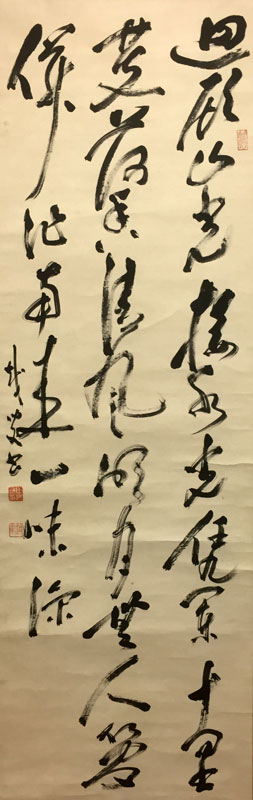 迴顧山光接水光凭闌十里
芰荷香清風明月無人管
併作南来一味涼
書